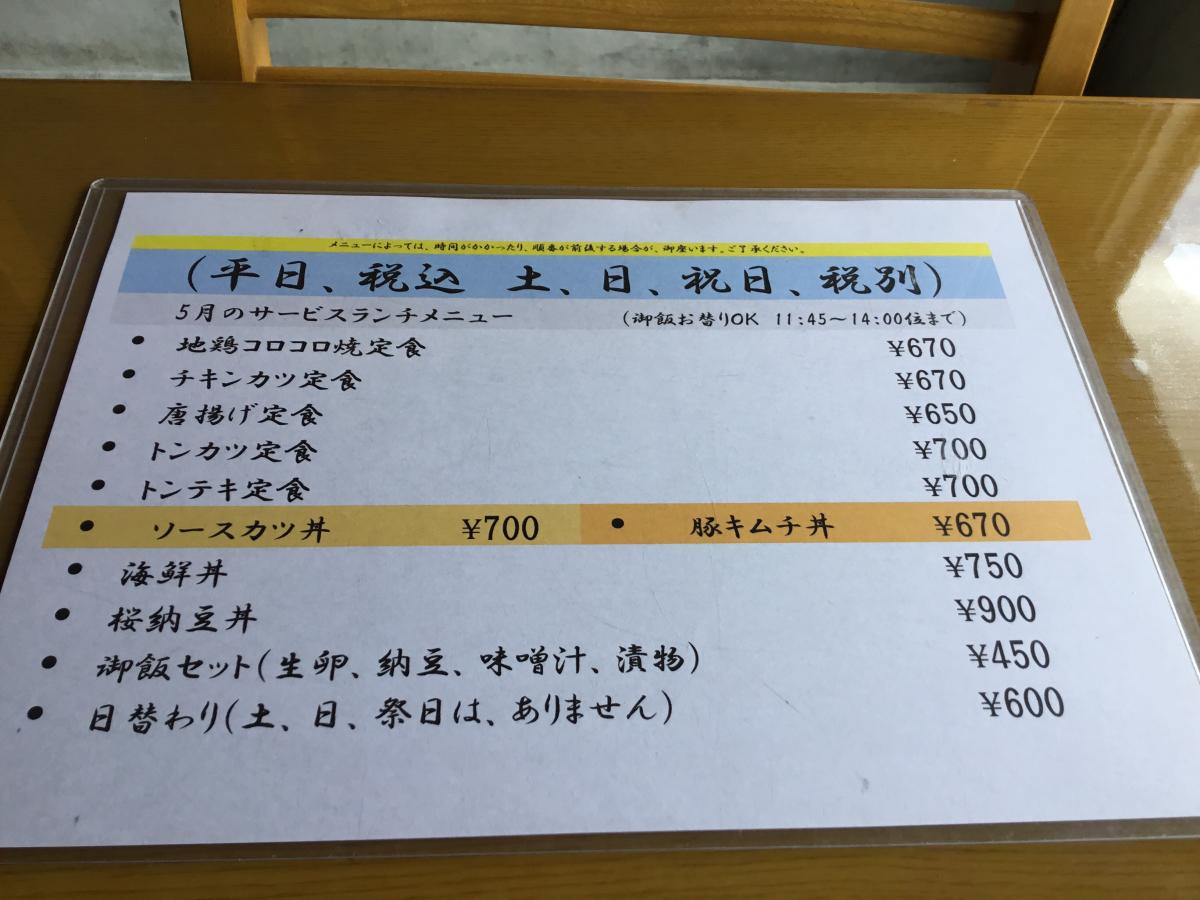 メニューによっては、時間がかかったり、順番が前後する場合が、御座います。ご了承ください。
(平日、税込 土、日、祝日、税別)
5月のサービスランチメニュー (御飯お替りOK 11:45～14:00位まで)
• 地鶏コロコロ焼定食 ¥670
• チキンカツ定食 ¥670
• 唐揚げ定食 ¥650
• トンカツ定食 ¥700
• トンテキ定食 ¥700
• ソースカツ丼 ¥700 • 豚キムチ丼 ¥670
• 海鮮丼 ¥750
• 桜納豆丼 ¥900
• 御飯セット(生卵、納豆、味噌汁、漬物) ¥450
• 日替わり(土、日、祭日は、ありません) ¥600